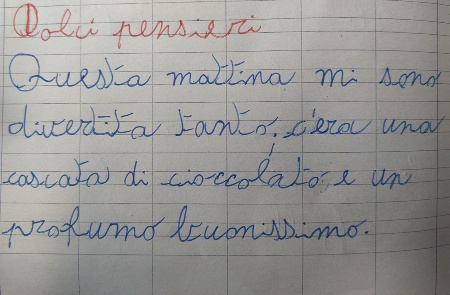 Dolci pensieri
Questa mattina mi sono
divertita tanto, c'era una
cascata di cioccolato, e un
profumo buonissimo.